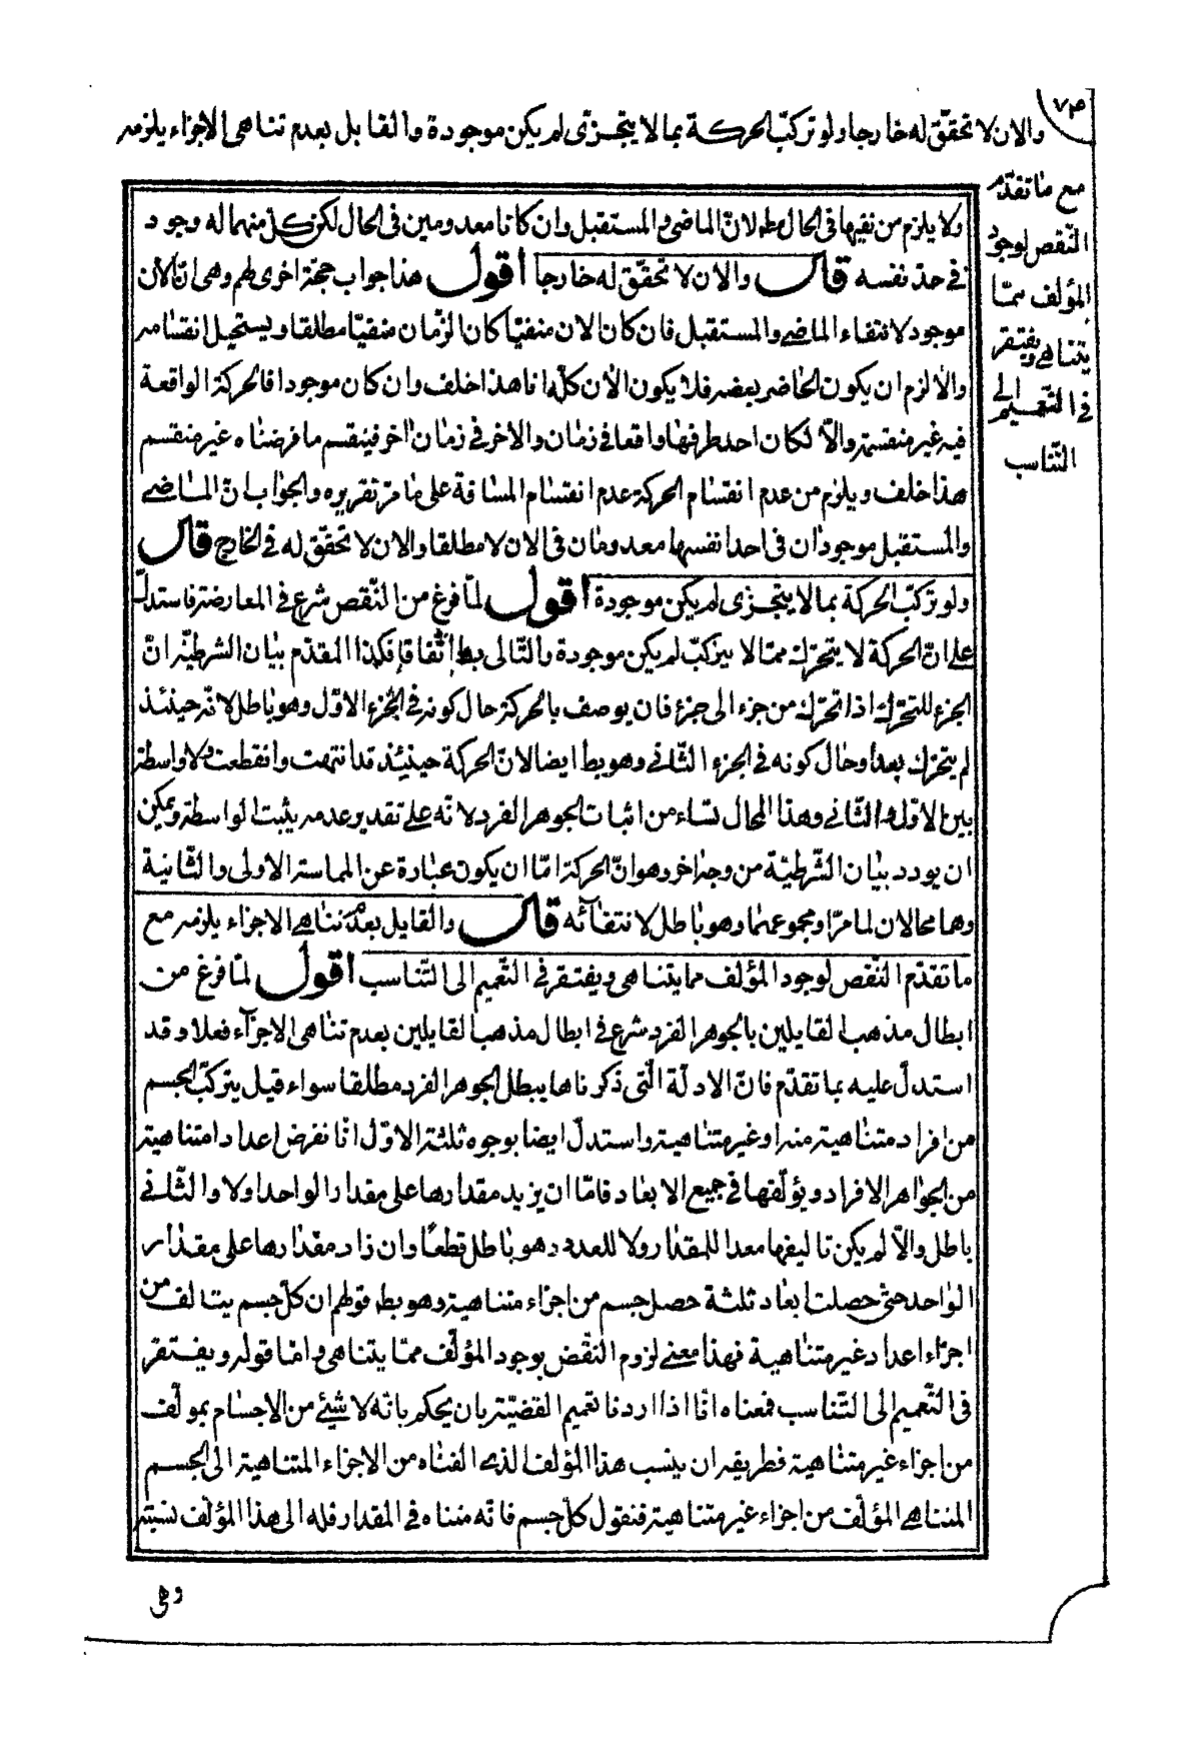 ٧٣
والان لا تحقّق له خارجا ولو تركبّ الحركة بما لا يتجزّى لم يكن موجودة والقابل بعدم تناهى الاجزاء يلزمه
مع ما تقدّم
النّقص لوجود
المؤلف ممّا
يتناهى ويفتقر
فى التعميم الى
التّناسب
ولا يلزم من نفيها فى الحال مطه لانّ الماضى والمستقبل وان كانا معدومين فى الحال لكن كلّ منهما له وجود
فى حدّ نفسه قال والان لا تحقّق له خارجا اقول هذا جواب حجّة اخرى لهم وهى انّ الان
موجود لانتفاء الماضى والمستقبل فان كان الان منفيّا كان الزّمان منفيّا مطلقا ويستحيل انقسامه
والا لزم ان يكون الحاضر بعضه فلا يكون الان كلّه انا هذا خلف وان كان موجودا فالحركة الواقعة
فيه غير منقسمة والاّ لكان احد طرفيها واقعا فى زمان والاخر فى زمان اخر فينقسم ما فرضناه غير منقسم
هذا خلف ويلزم من عدم انقسام الحركة عدم انقسام المسافة على ما مرّ تقريره والجواب انّ الماضى
والمستقبل موجودان فى احد انفسهما معدومان فى الان لا مطلقا والان لا تحقّق له فى الخارج قال
ولو تركبّ الحركة بما لا يتجزّى لم يكن موجودة اقول لمّا فرغ من النّقص شرع فى المعارضة فاستدلّ
على انّ الحركة لا يتحرّك ممّا لا يتركبّ لم يكن موجودة والتّالى بط اتّفاقا فكذا المقدّم بيان الشرطيّة انّ
الجزء المتحرّك اذا تحرّك من جزء الى جزء فان يوصف بالحركة حال كونه فى الجزء الاوّل وهو باطل لانّه حينئذ
لم يتحرّك بعد او حال كونه فى الجزء الثّانى وهو بط ايضا لانّ الحركة حينئذ قد انتهت وانقطعت ولا واسطة
بين الاوّل والثّانى وهذا المحال نشاء من اثبات الجوهر الفرد لانّه على تقدير عدمه يثبت الواسطة ويمكن
ان يورد بيان الشّرطيّة من وجه اخر وهو انّ الحركة امّا ان يكون عبارة عن المماسة الاولى والثّانية
وهما محالان لما مرّ او مجموعهما وهو باطل لانتفائه قال والقايل بعدم تناهى الاجزاء يلزمه مع
ما تقدّم النّقص لوجود المؤلف مما يتناهى ويفتقر فى التّعميم الى التّناسب اقول لمّا فرغ من
ابطال مذهب القايلين بالجوهر الفرد شرع فى ابطال مذهب القايلين بعدم تناهى الاجزآء فعلا وقد
استدلّ عليه بما تقدّم فانّ الادلّة الّتى ذكرناها يبطل الجوهر الفرد مطلقا سواء قيل يتركّب الجسم
من افراد متناهية منه او غير متناهية واستدلّ ايضا بوجوه ثلثة الاوّل انّا نفرض اعدادا متناهية
من الجواهر الافراد ويؤلّفها فى جميع الابعاد فامّا ان يزيد مقدارها على مقدار الواحد اولا والثّانى
باطل والاّ لم يكن تاليفها معدا للمقدار ولا للعدد وهو باطل قطعًا وان زاد مقدارها على مقدار
الواحد حتى حصلت ابعاد ثلثة حصل جسم من اجزاء متناهية وهو بطه قولهم ان كلّ جسم يتالف من
اجزاء اعداد غير متناهية فهذا معنى لزوم النّقض بوجود المؤلّف ممّا يتناهى وامّا قوله ويفتقر
فى التّعميم الى التّناسب فمعناه انّا اذا اردنا تعميم القضيّة بان يحكم بانّه لا شيئ من الاجسام بمولّف
من اجزاء غير متناهية فطريقه ان ينسب هذا المؤلف الذى الفناه من الاجزاء المتناهية الى الجسم
المتناهى المؤلّف من اجزاء غير متناهية فنقول كلّ جسم فانّه متناه فى المقدار فله الى هذا المؤلّف نسبة
وهى